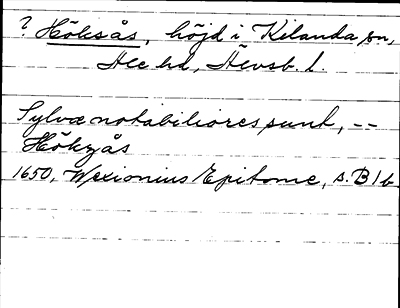 ? Höksås, höjd i Kilanda sn,
Ale hd, Älvsb. l.
Sylvæ notabiliores sunt, --
Hökzås
1650, Wexionius Epitome, s. B 1 b